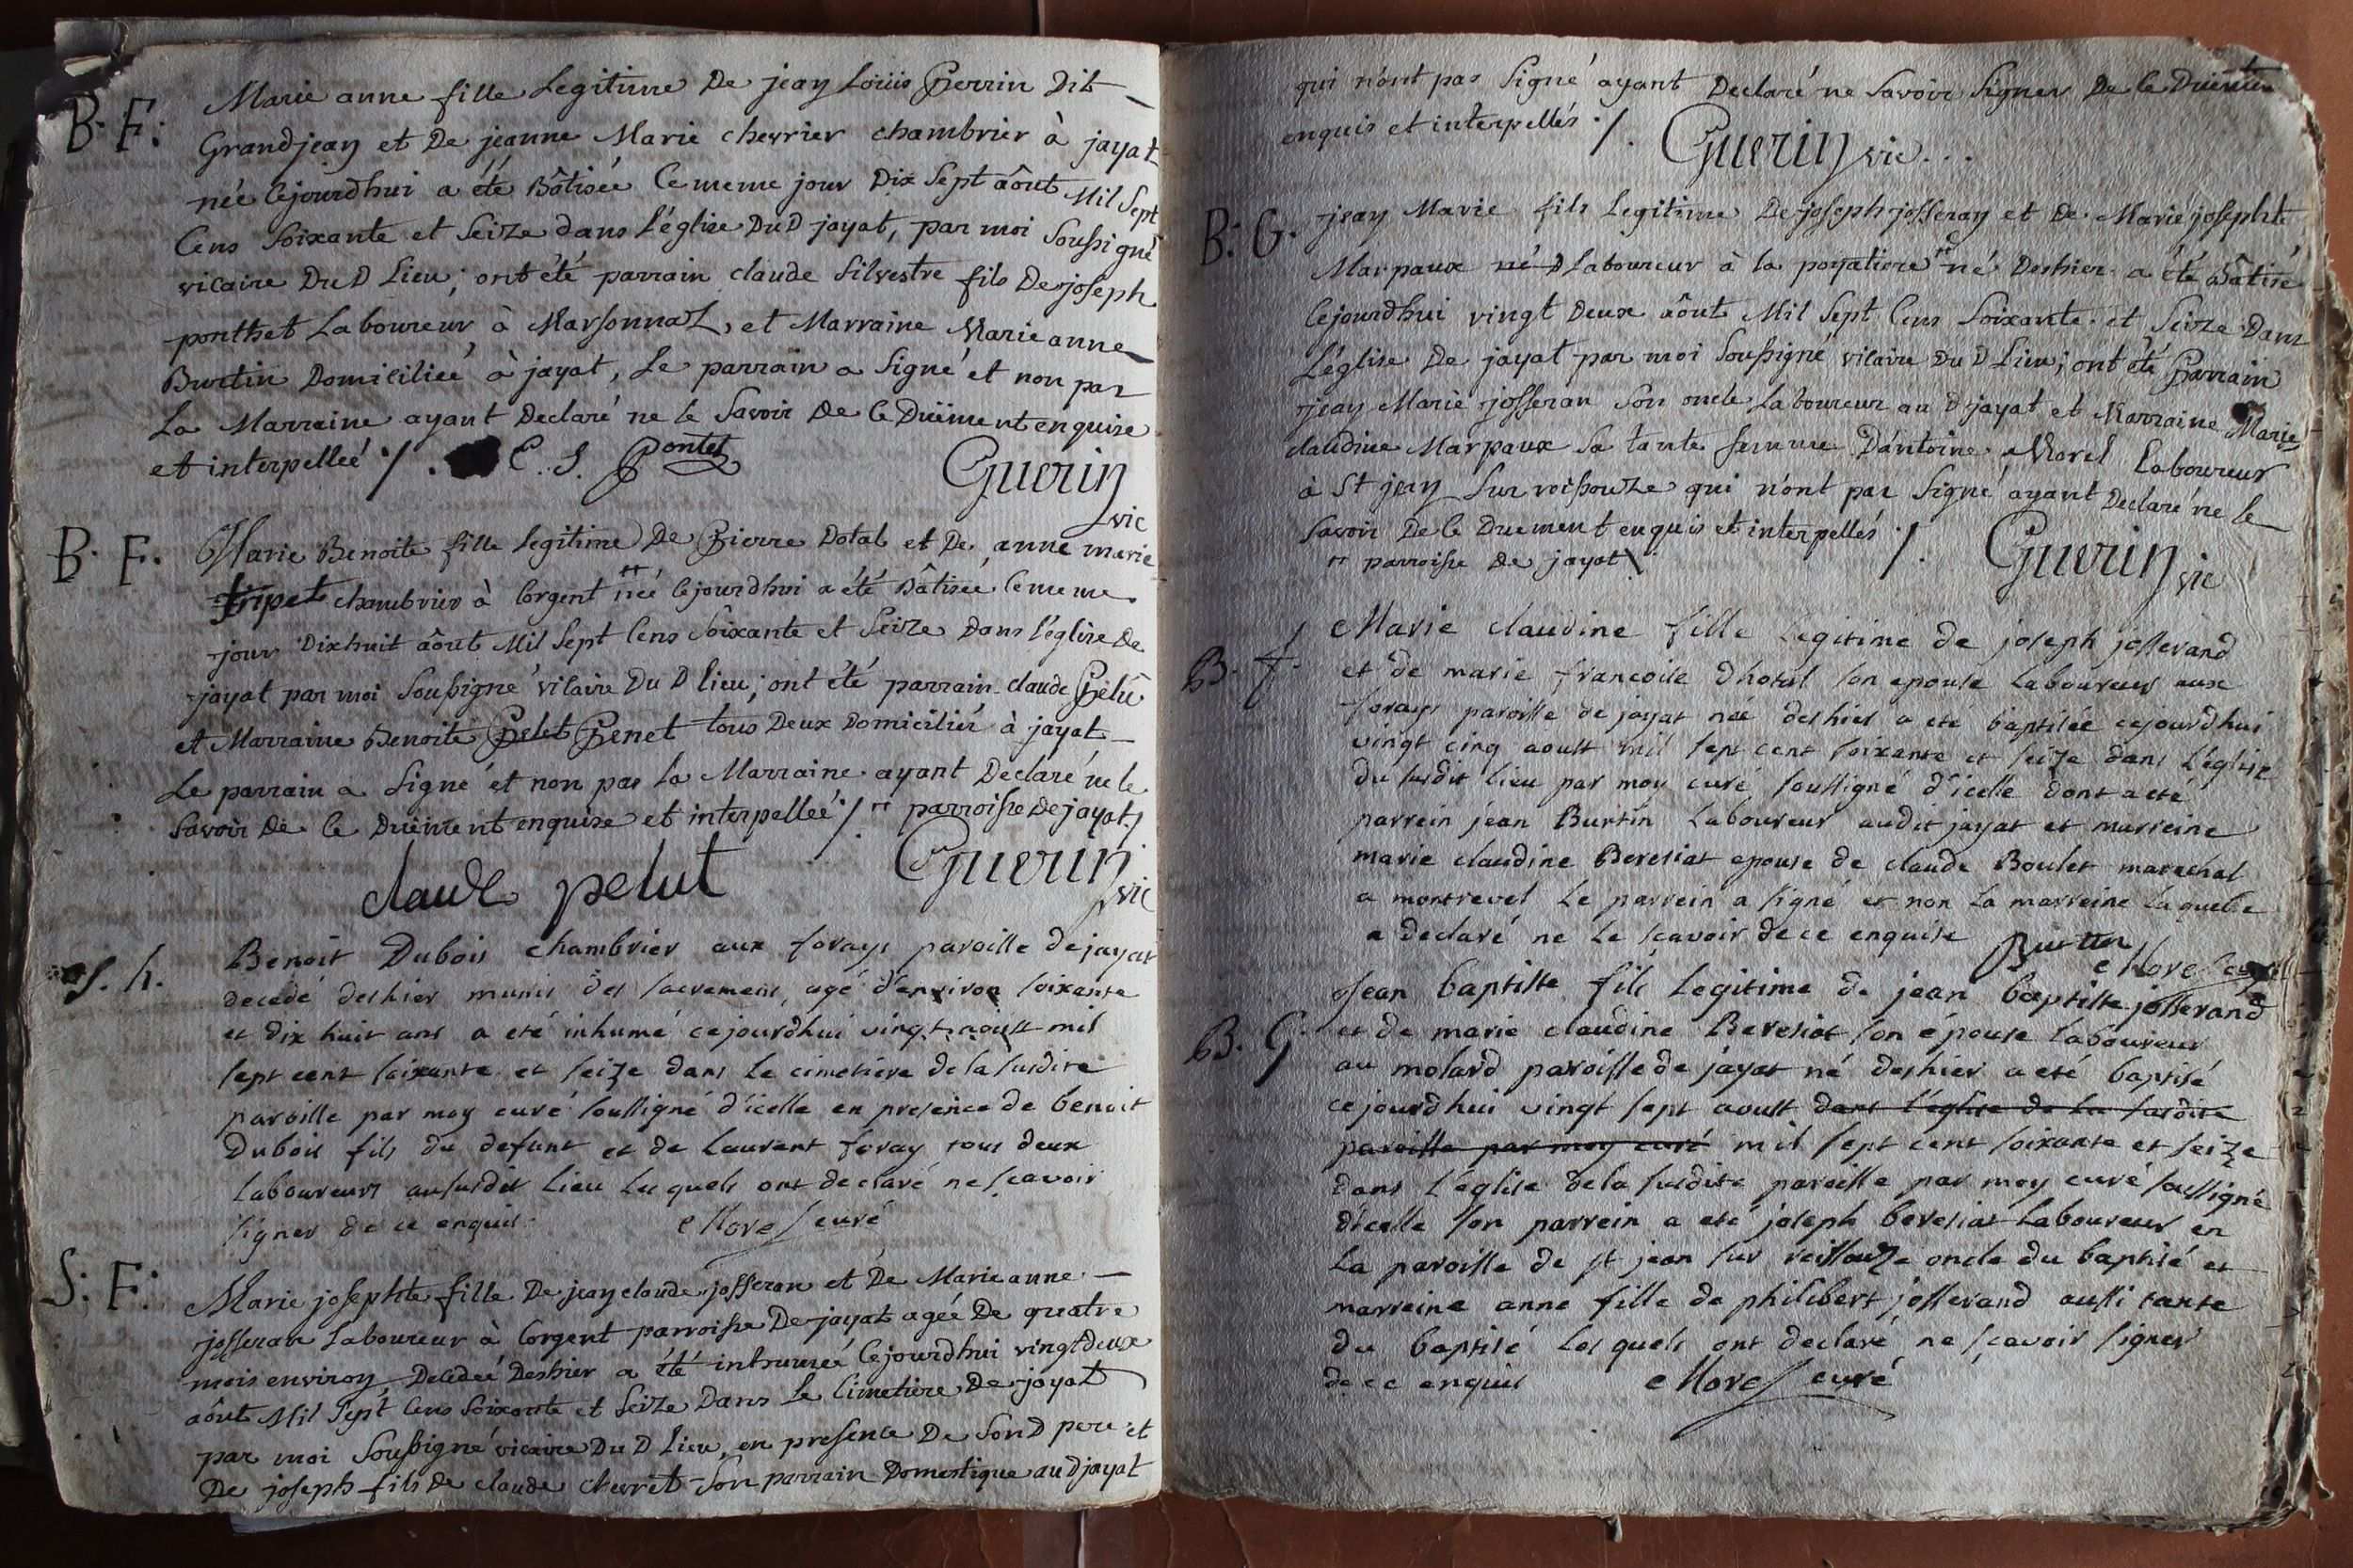 B. F. Marie anne fille Legitime De jean Loüis Perrin Dit
Grandjean et De jeanne Marie chevrier chambrier à jayat
née cejourdhui a été Bâtisée Ce meme jour Dix Sept aôut Mil Sept
Cens Soixante et Seize dans L'église DuD jayat, par moi Soussigné
vicaire DuD Lieu; ont été parrain claude Silvestre fils De joseph
ponthet Laboureur à Marsonnaz, et Marraine Marie anne
Burtin Domiciliée à jayat, Le parrain a Signé et non pas
La Marraine ayant Declaré ne le Savoir De Ce Düement enquise
et interpelleé ./. C. S. Pontet
Guerin
vic
B. F. Marie Benoite fille Legitime De Pierre Dotal et De anne marie
tripet chambrier à Corgent ++ née Cejourdhui a été Bâtisée Ce meme
jour Dixhuit aôut Mil Sept Cens Soixante et Seize Dans l'église De
jayat par moi Soussigné vicaire Du D Lieu; ont été parrain claude Pelù
et Marraine Benoite Pelet Penet tous Deux Domiciliés à jayat
Le parrain a Signé et non pas La Marraine ayant Declaré ne le
Savoir De Ce Düement enquise et interpelleé ./. ++ parroisse De jayat./
Guerin
vic
claude pelut
S. h. Benoit Dubois chambrier aux forays paroisse de jayat
decedé deshier munis des sacremens agé d'environ soixante
et dix huit ans a eté inhumé cejourdhui vingt aoust mil
sept cent soixante et seize dans le cimetiere de la susdite
paroisse par moy curé soussigné d'icelle en presence de benoit
Dubois fils du defunt et de laurent foray tous deux
laboureurs au susdit lieu les quels ont declaré ne scavoir
signer de ce enquis Morel curé
S: F: Marie josephte fille De jean claude josseran et De Marie anne
josseran Laboureur à Corgent parroisse De jayat agée De quatre
mois environ Decedeé Deshier a été inhumeé Cejourdhui vingt deux
aôut Mil Sept Cens Soixante et Seize Dans Le Cimetiere De jayat
par moi Soussigné vicaire Du D Lieu, en presence De SonD pere et
De joseph fils De claude chevret Son parrain Domestique auD jayat
qui n'ont pas Signé ayant Declaré ne Savoir Signer De Ce Düement
enquis et interpellés ./. Guerin vic...
B: G. jean Marie fils Legitime De joseph josseran et De Marie josephte
Marpaux né D Laboureur à la poyatiere ++ né Deshier a été Bâtisé
Cejourdhui vingt Deux aôut Mil Sept Cens Soixante et Seize Dans
L'église De jayat par moi Soussigné vicaire Du D Lieu; ont été Parrain
jean Marie josseran Son oncle Laboureur au D jayat et Marraine Marie
claudine Marpaux Sa tante femme D'antoine Morel Laboureur
à St jean Sur roissouze qui n'ont pas Signé ayant Declaré ne le
Savoir De Ce Duement enquis et interpellés ./. Guerin vic
++ parroisse De jayat
B. f. Marie claudine fille legitime de joseph josserand
et de marie francoise dhotal son epouse laboureur aux
forays paroisse de jayat née deshier a ete baptisée cejourdhui
vingt cinq aoust mil sept cent soixante et seize dans l'église
du susdit lieu par moy curé soussigné d'icelle dont a eté
parrein jean Burtin laboureur audit jayat et marreine
marie claudine Beresiat epouse de claude Boulet marechal
a montrevel le parrein a signé et non la marreine laquelle
a declaré ne le scavoir de ce enquise Burtin
Morel curé
B. G. Jean baptiste fils legitime de jean baptiste josserand
et de marie claudine Beresiat son épouse laboureur
au molard paroisse de jayat né deshier a eté baptisé
cejourdhui vingt sept aoust dans l'église de la susdite
paroisse par moy curé mil sept cent soixante et seize
dans l'église de la susdite paroisse par moy curé soussigné
d'icelle son parrein a eté joseph beresiat laboureur en
la paroisse de st jean sur reissouze oncle du baptisé et
marreine anne fille de philibert josserand aussi tante
du baptisé les quels ont declaré ne scavoir signer
de ce enquis Morel curé